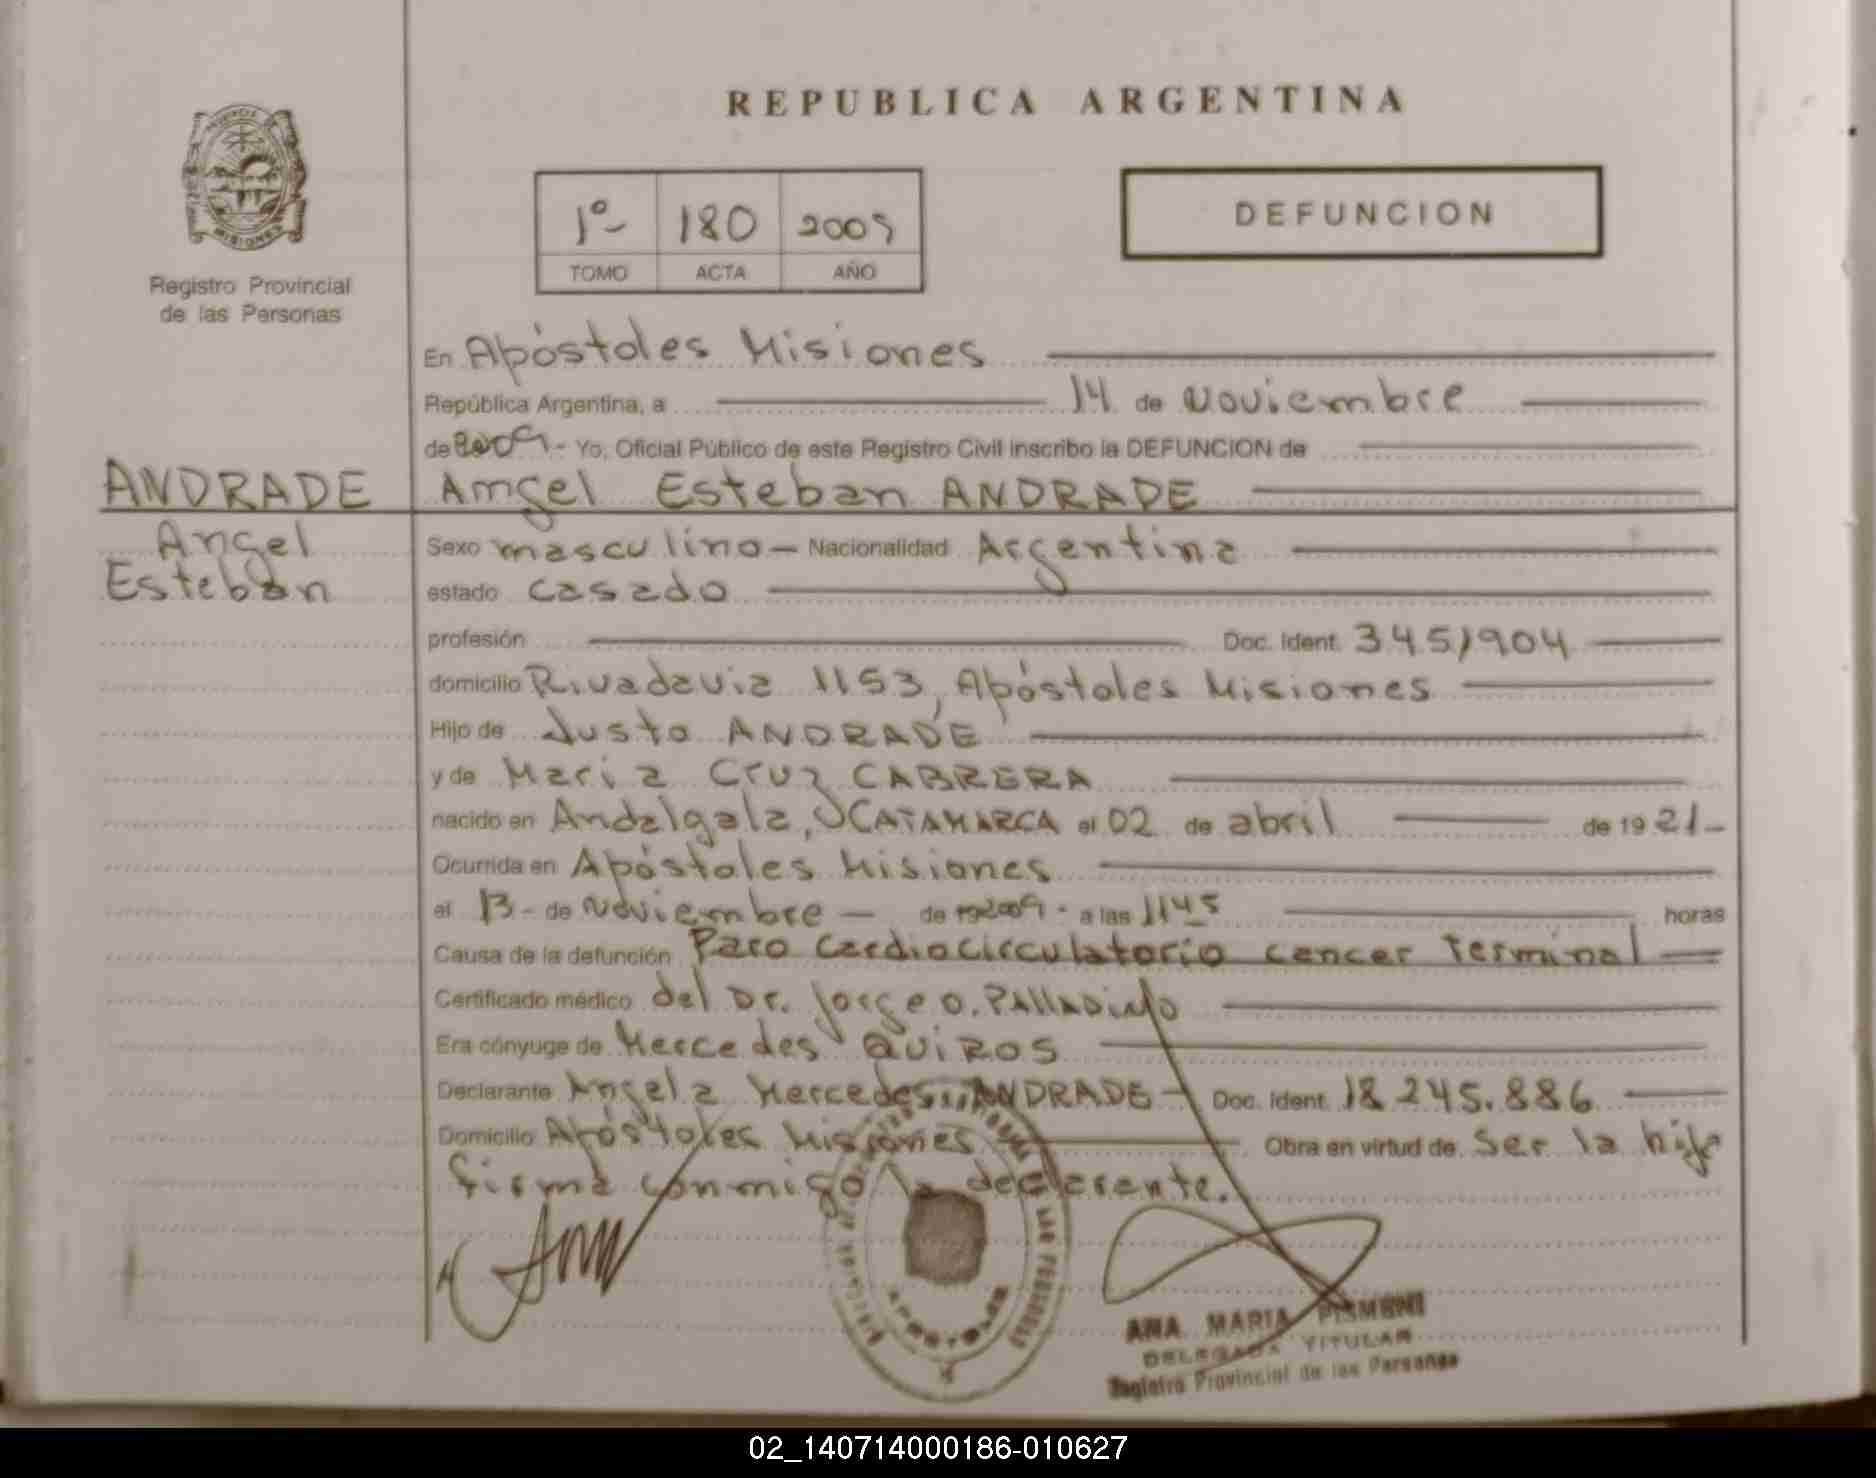 REPUBLICA ARGENTINA
1º 180 2009
TOMO ACTA AÑO
DEFUNCION
MISIONES
Registro Provincial
de las Personas
En Apóstoles Misiones
República Argentina, a 14 de Noviembre
de 2009 - Yo, Oficial Público de este Registro Civil inscribo la DEFUNCION de
ANDRADE
Angel
Esteban
Angel Esteban ANDRADE
Sexo masculino - Nacionalidad Argentina
estado casado
profesión Doc. Ident. 3451904
domicilio Rivadavia 1153, Apóstoles Misiones
Hijo de Justo ANDRADE
y de Maria Cruz CABRERA
nacido en Andalgala, CATAMARCA el 02 de abril de 19 21-
Ocurrida en Apóstoles Misiones
el 13 - de Noviembre - de 19 2009 - a las 1145 horas
Causa de la defunción Paro Cardiocirculatorio cancer Terminal
Certificado médico del Dr. Jorge O. PALLADINO
Era cónyuge de Mercedes QUIROS
Declarante Angela Mercedes ANDRADE - Doc. Ident. 18.245.886
Domicilio Apóstoles Misiones Obra en virtud de Ser la hija
firma conmigo la declarante.
APOSTOLES
ANA MARIA PISMENI
DELEGADA TITULAR
Registro Provincial de las Personas
02_140714000186-010627